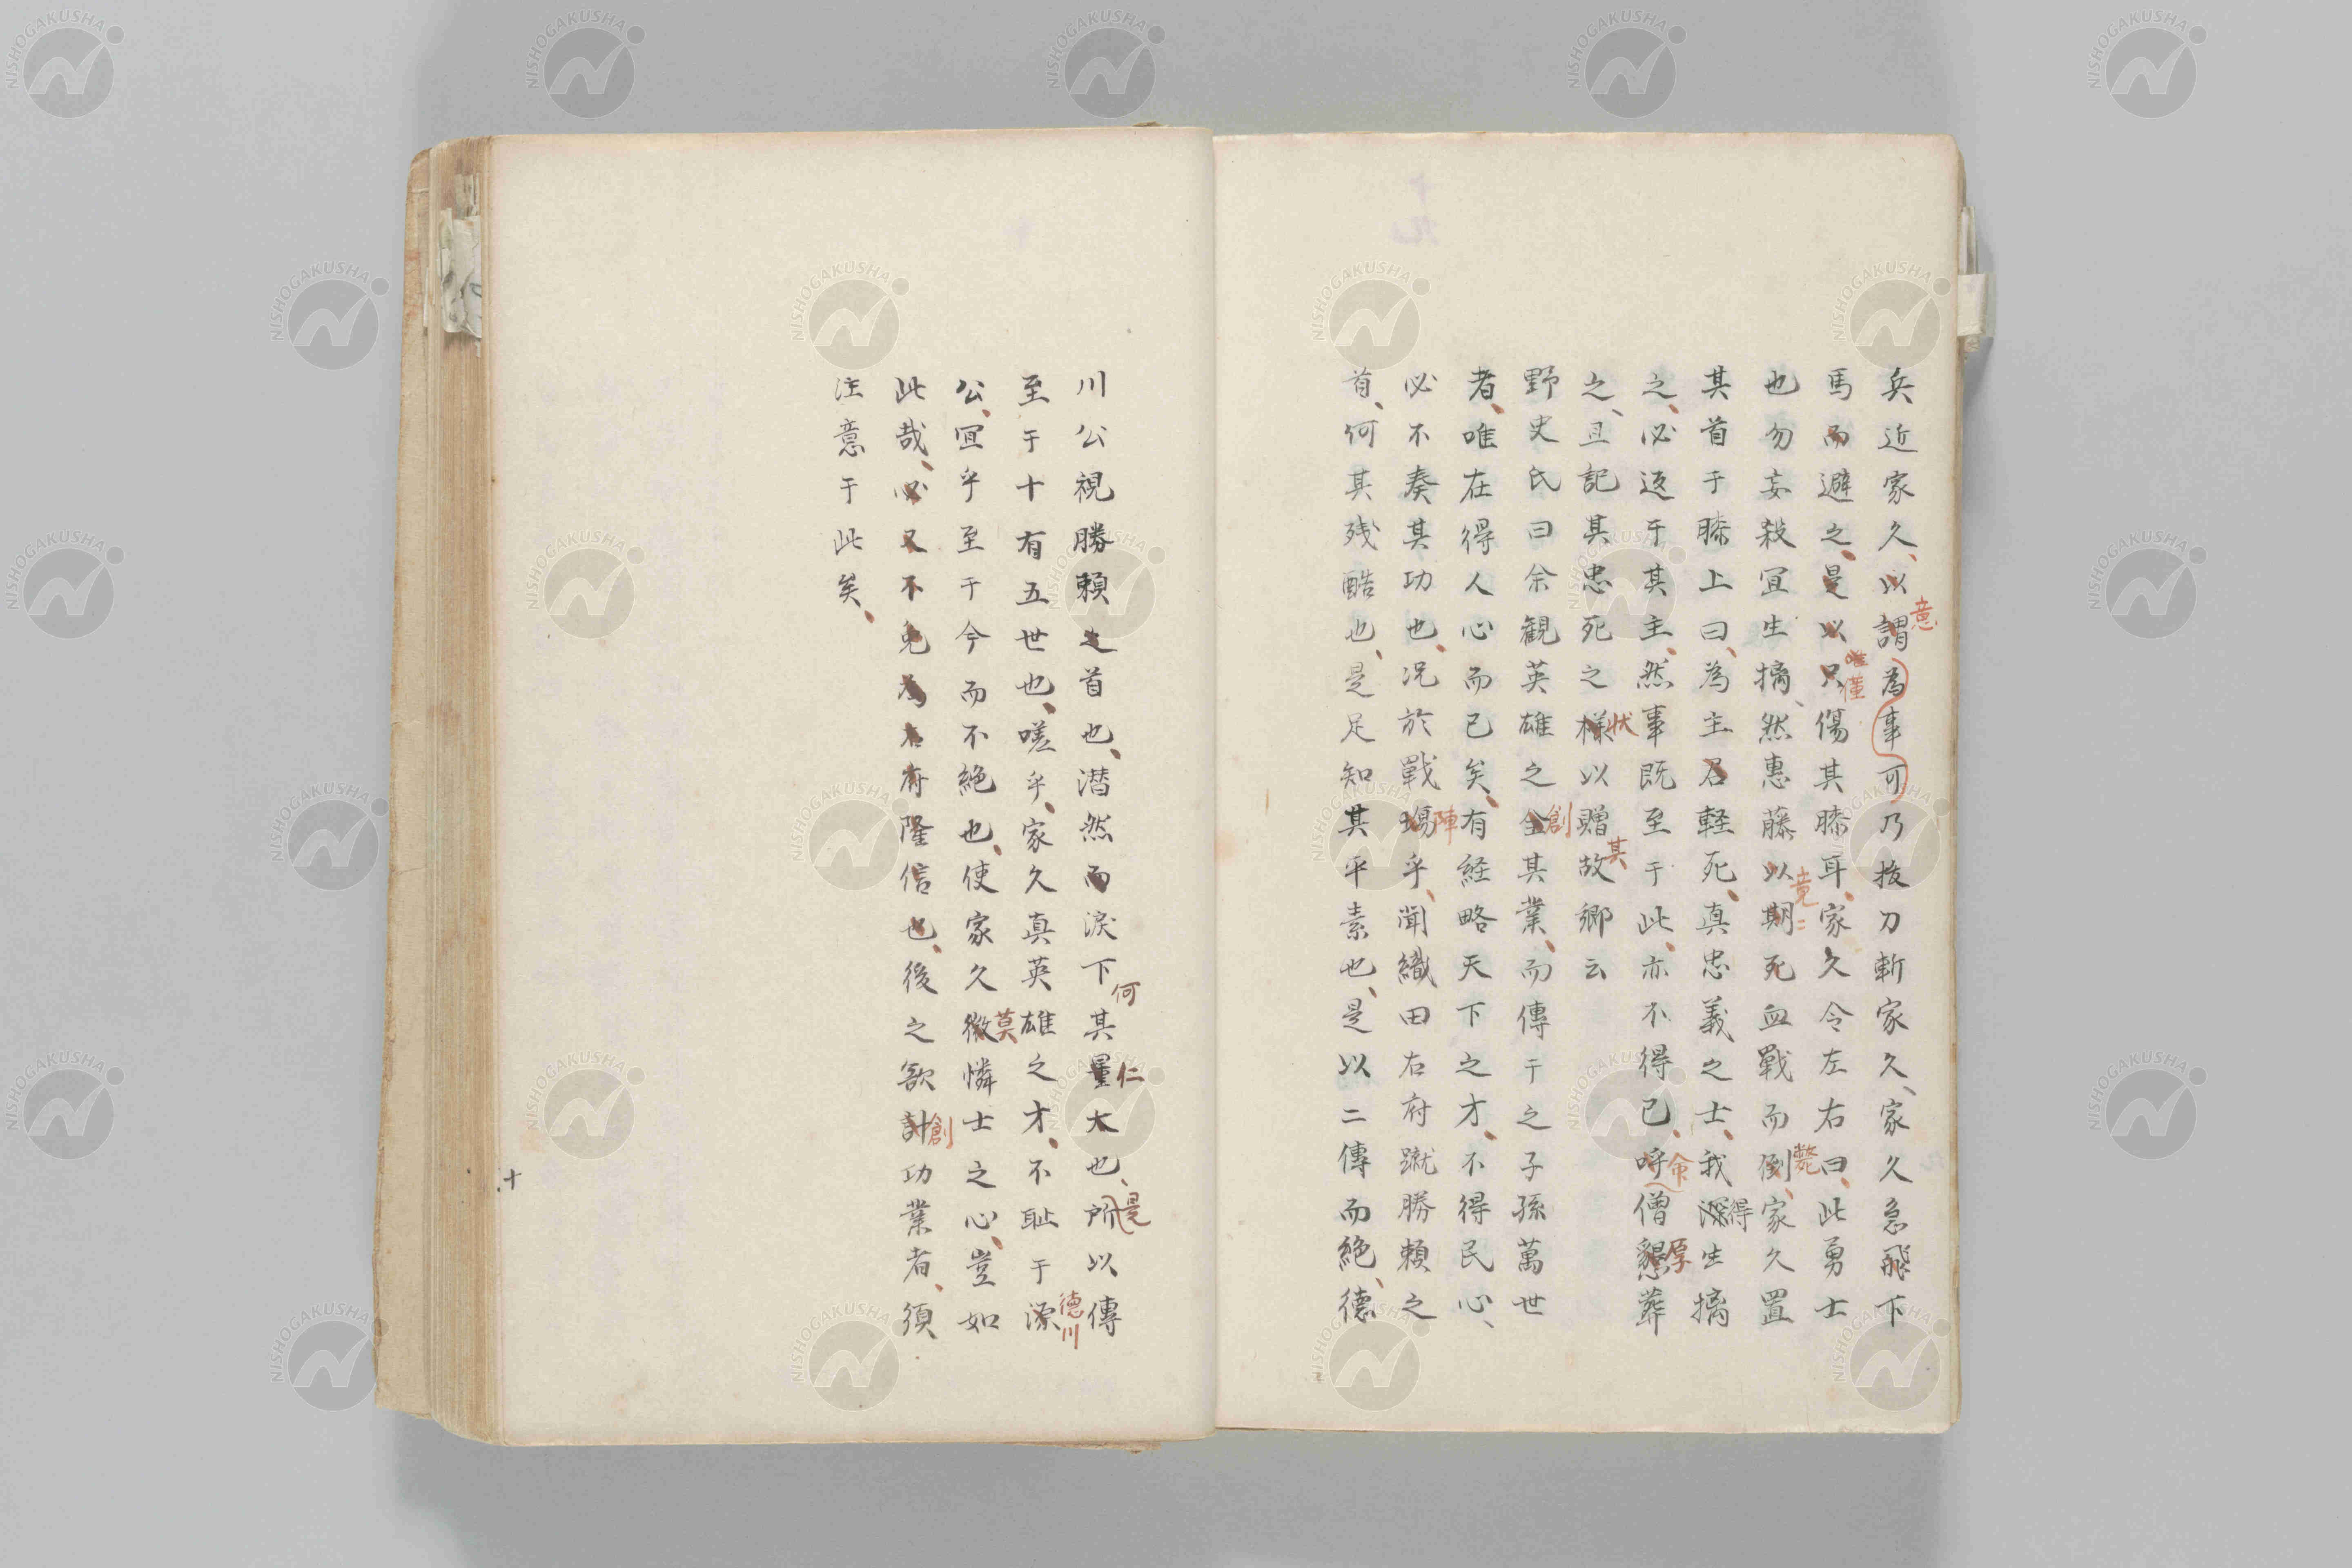 兵近家久、以謂為事可乃抜刀斬家久、家久急飛下
意
馬而避之、是以只傷其膝耳、家久令左右曰、此勇士
唯僅
也勿妄殺宜生擒、然惠藤以期死血戰而倒、家久置
竟
斃
其首于膝上曰、為主君軽死、真忠義之士、我深生擒
得
之、必返于其主、然事既至于此、亦不得已、呼僧懇葬
命
厚
之、且記其忠死之様以贈故郷云
状
其
野史氏曰余観英雄之全其業、而傳于之子孫萬世
創
者、唯在得人心而已矣、有経略天下之才、不得民心、
必不奏其功也、况於戰場乎、聞織田右府蹴勝頼之
陣
首、何其残酷也、是足知其平素也、是以二傳而絶、德
川公視勝頼之首也、潜然而淚下其量大也、所以傳
何
仁
是
至于十有五世也、嗟乎、家久真英雄之才、不耻于
徳川
公、宜乎至于今而不絶也、使家久微憐士之心、豈如
莫
此哉、必又不免為右府隆信也、後之欲計功業者、須
創
注意于此矣、
十
NISHOGAKUSHA